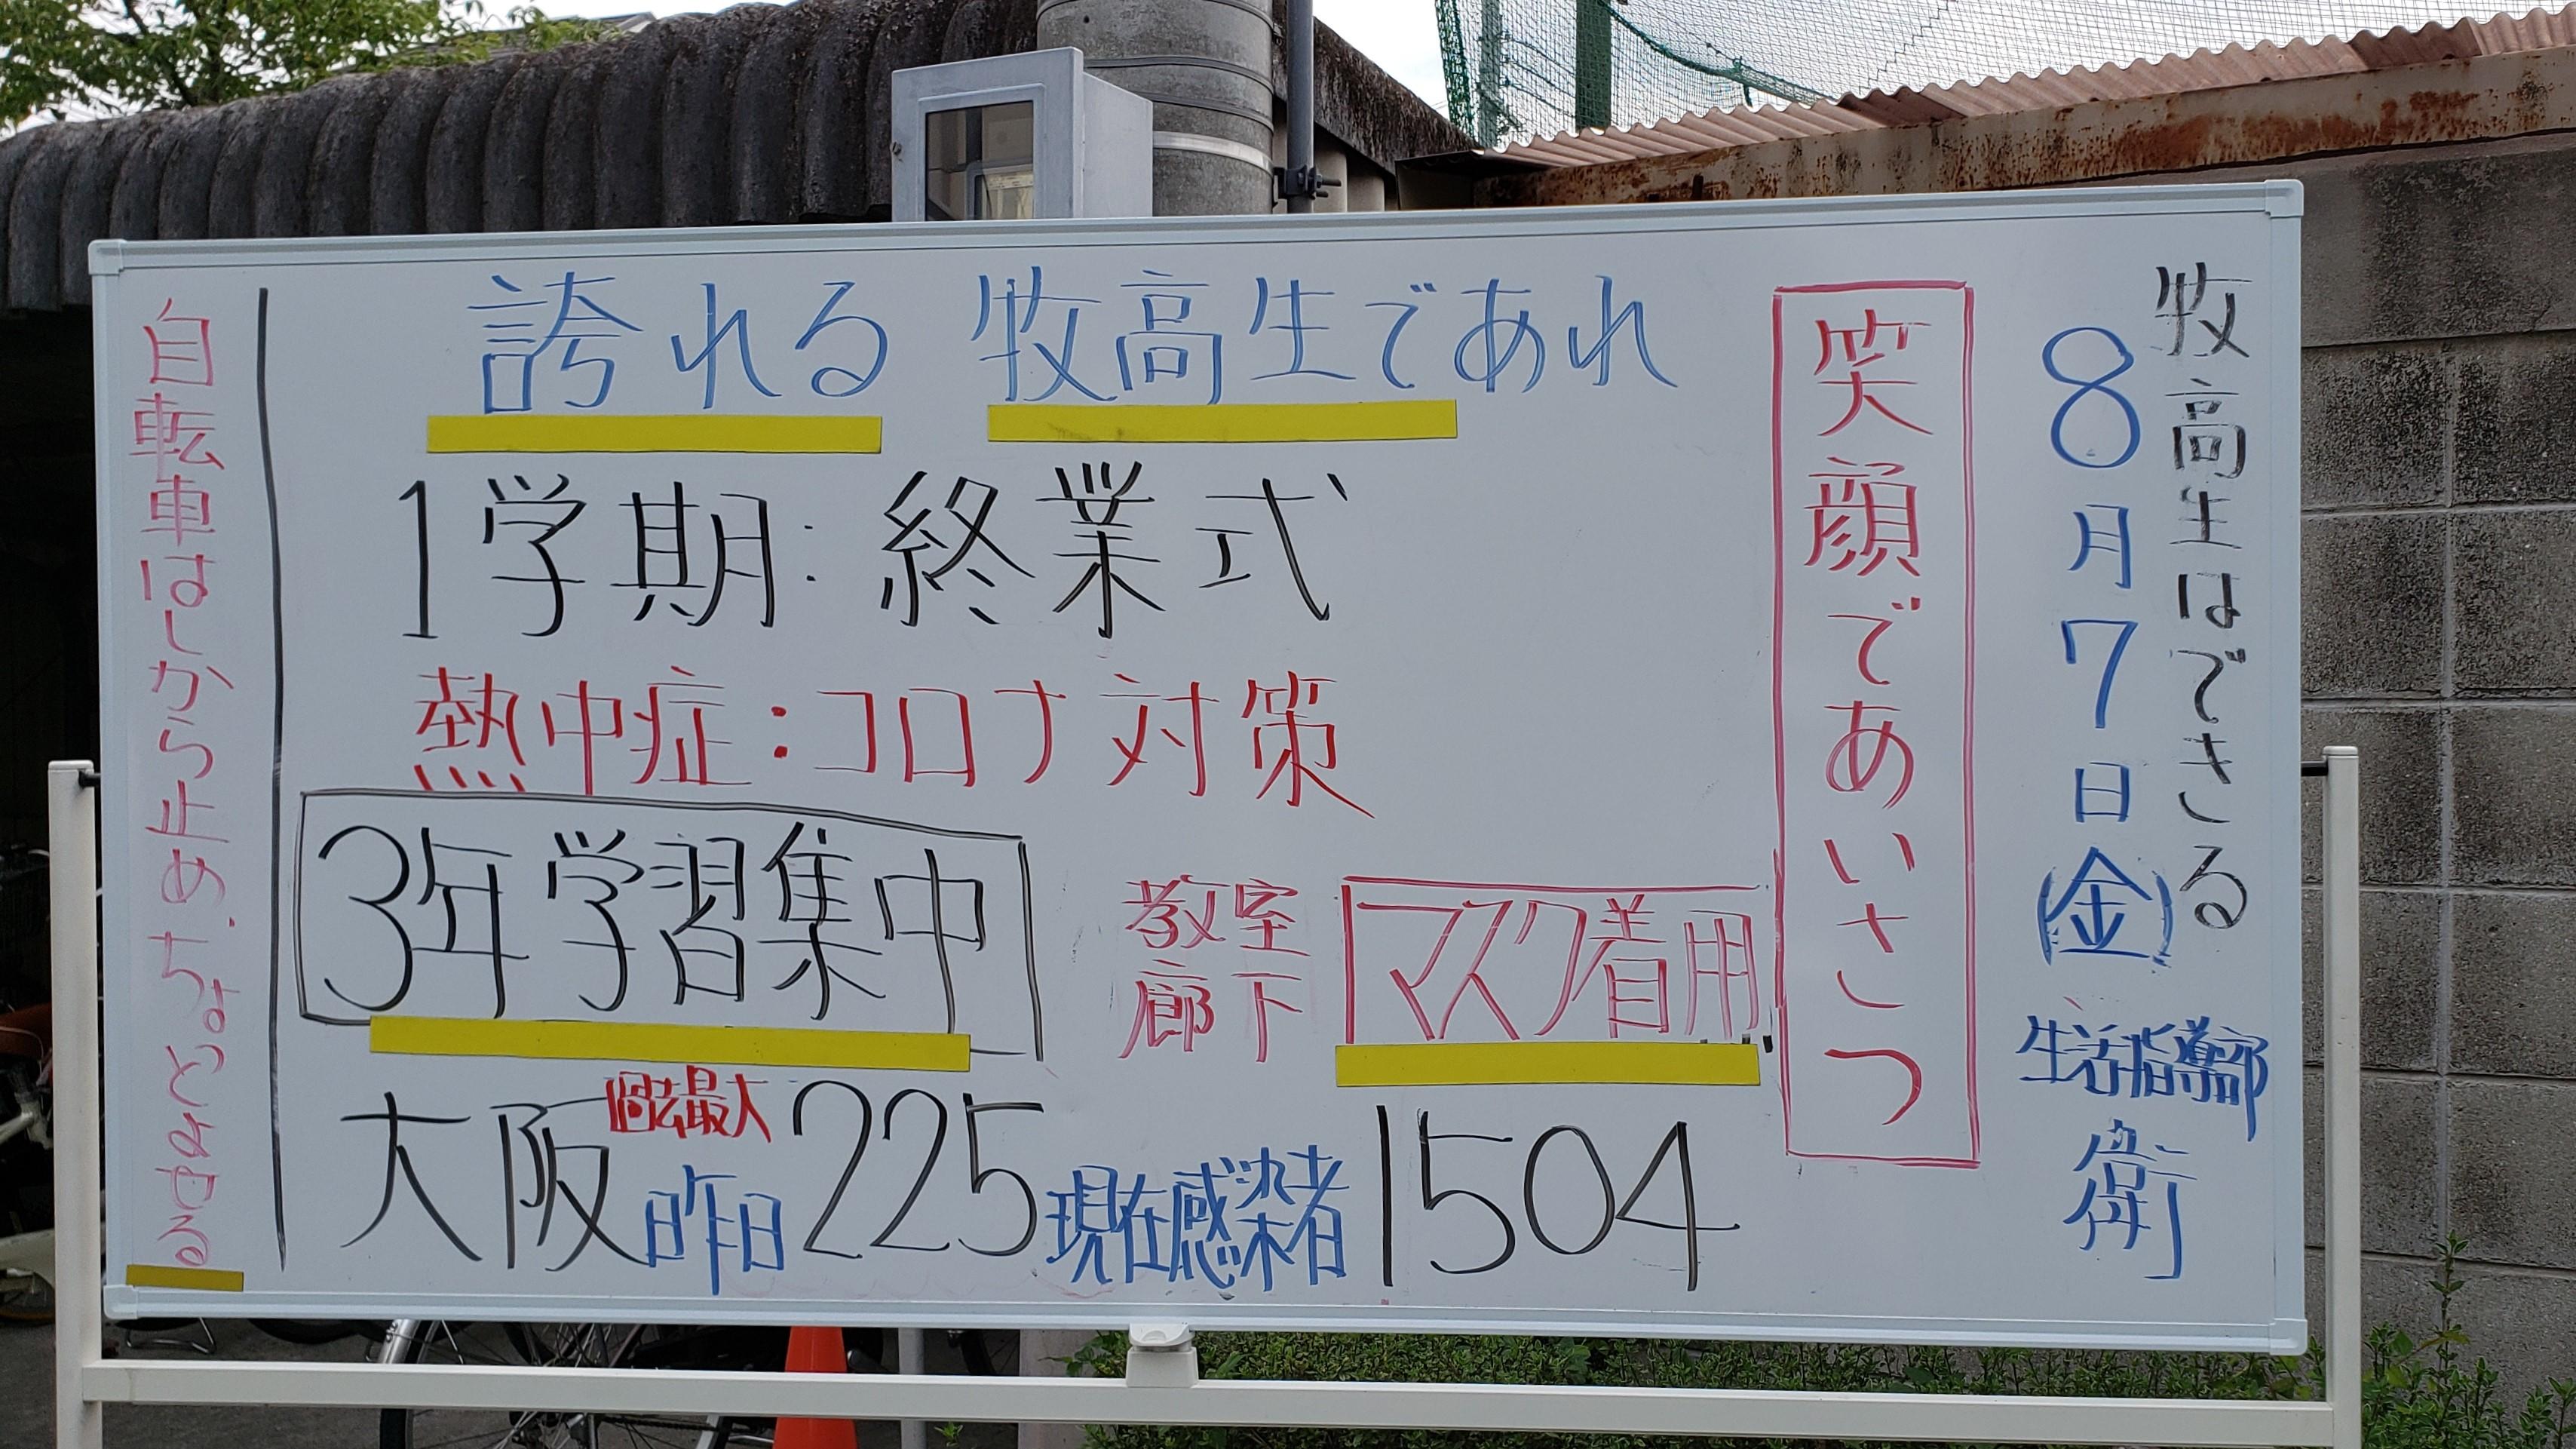 牧高生はできる
8月7日(金)
生活指導部
衛
笑顔であいさつ
誇れる 牧高生であれ
1学期:終業式
熱中症:コロナ対策
3年学習集中
教室
廊下
マスク着用
大阪 過去最大 昨日 225 現在感染者 1504
自転車はしから止め、ちょっとよせる